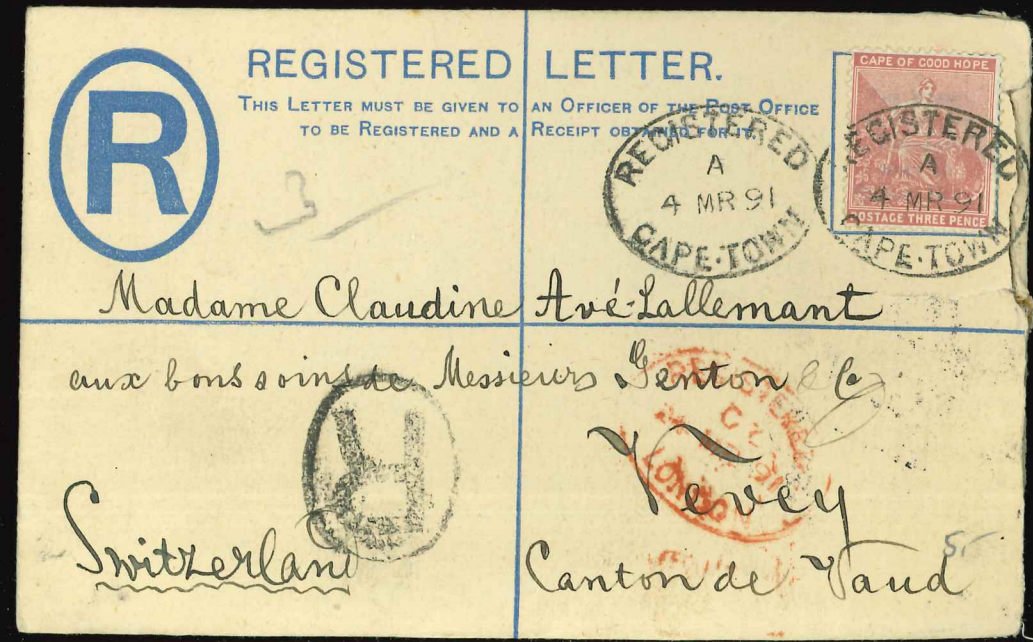 R
REGISTERED LETTER.
THIS LETTER MUST BE GIVEN TO AN OFFICER OF THE POST OFFICE
TO BE REGISTERED AND A RECEIPT OBTAINED FOR IT.
CAPE OF GOOD HOPE
POSTAGE THREE PENCE
REGISTERED
A
4 MR 91
CAPE·TOWN
REGISTERED
A
4 MR 91
CAPE·TOWN
3
Madame Claudine Avé-Lallemant
aux bons soins de Messieurs Genton & Co
REGISTERED
LONDON
R
Vevey
Switzerland
Canton de Vaud